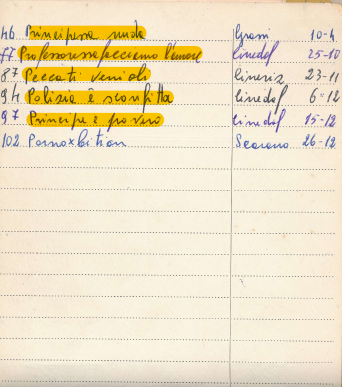 46 Principessa nuda Grassi 10-4
77 Professoressa facciamo l'amore Cinedaf 25-10
87 Peccati veniali Cineriz 23-11
94 Polizia è sconfitta Cinedaf 6-12
97 Principe e povero Cinedaf 15-12
102 Pornoxbition 26-12